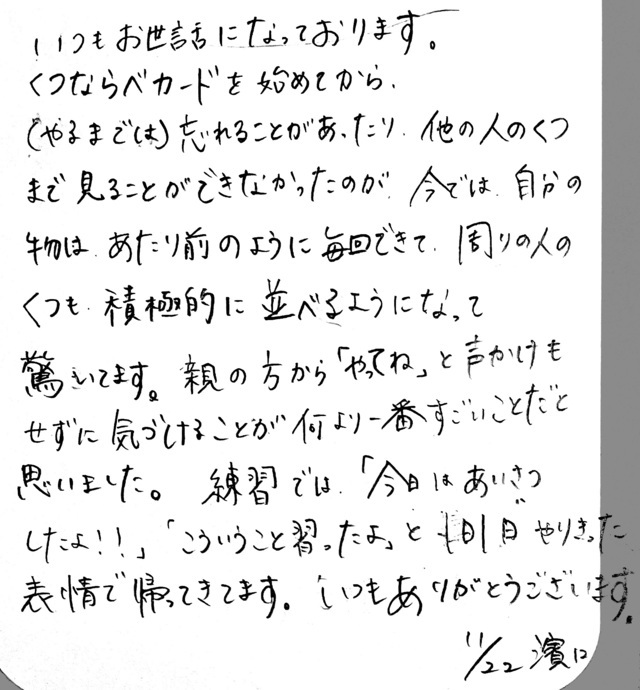 いつもお世話になっております。
くつならべカードを始めてから、
(やるまでは)忘れることがあったり、他の人のくつ
まで見ることができなかったのが、今では、自分の
物は、あたり前のように毎回できて、周りの人の
くつも、積極的に並べるようになって
驚いてます。親の方から「やってね」と声かけも
せずに気づけることが何より一番すごいことだと
思いました。練習では、「今日はあいさつ
したよ!!」「こういうこと習ったよ」と1日1日やりきった
表情で帰ってきてます。いつもありがとうございます。
11/22 濱口